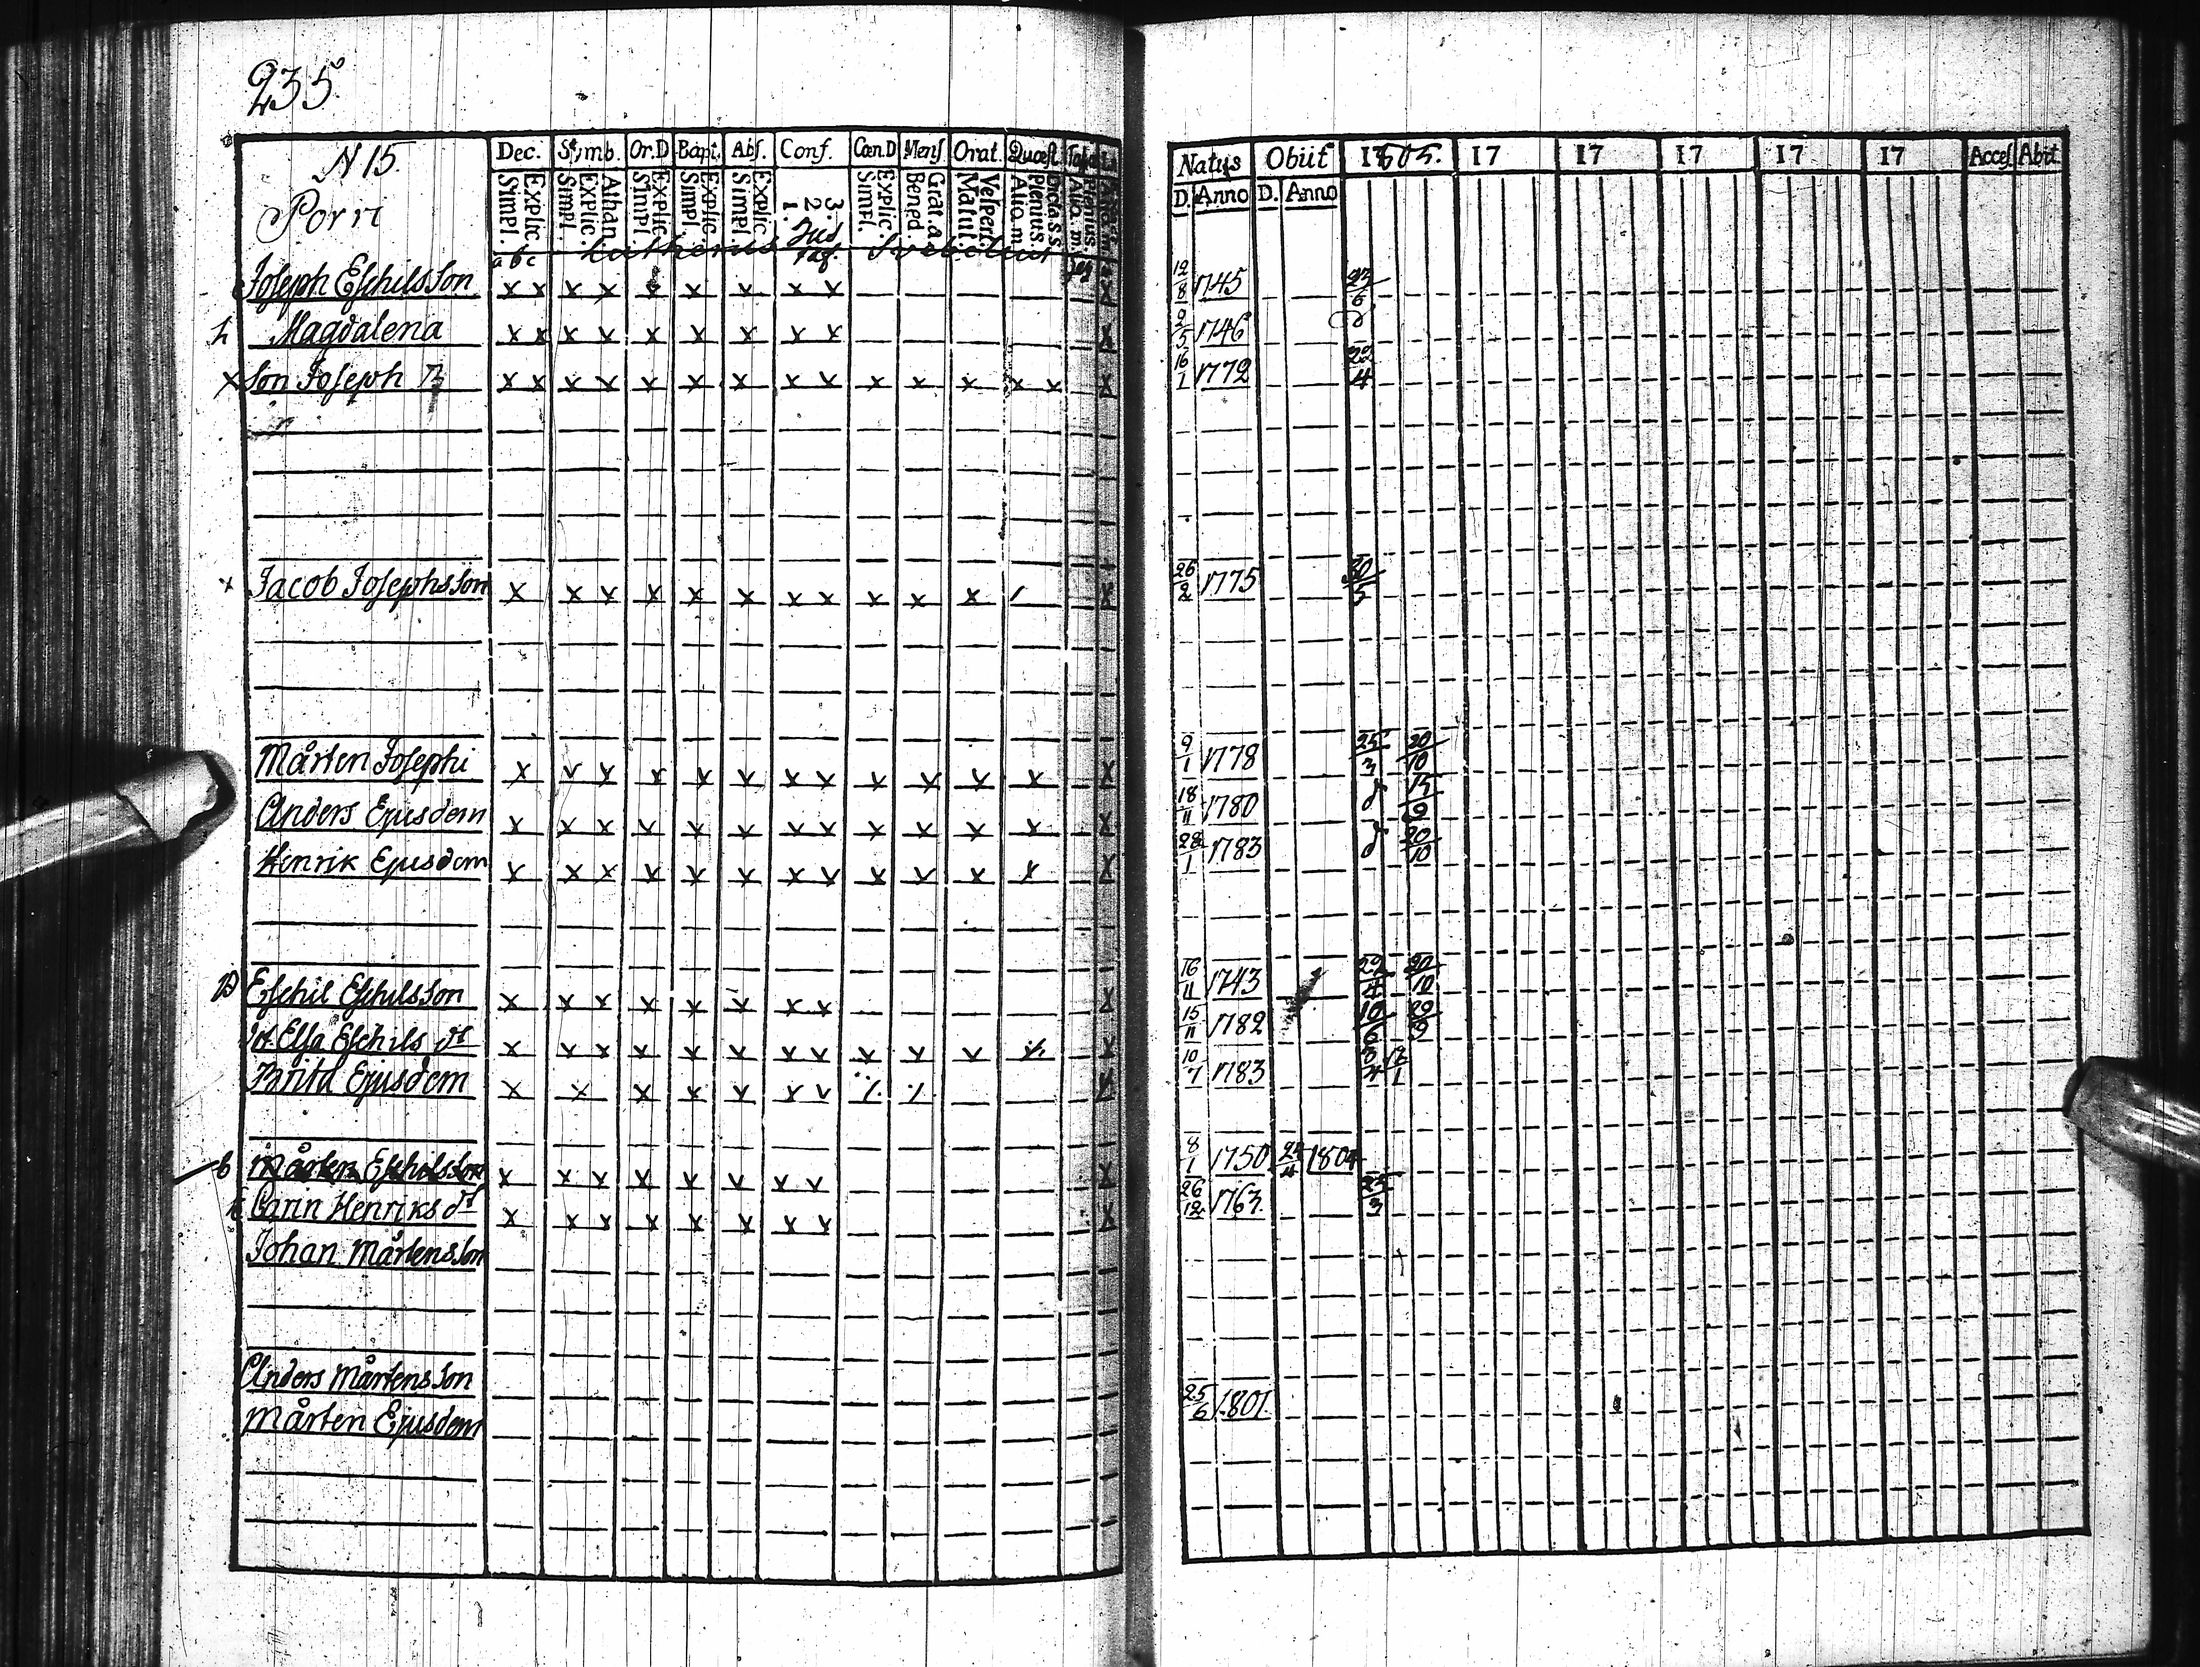 235
N 15.
Porri
Dec. Simb. Or.D Bapt. Abs. Conf. Cœn.D Mens Orat. Quæst
Simpl. Explic. Simpl. Explic. Athan. Simpl. Explic. Simpl. Explic. Simpl. Explic. 1. 2. 3. Simpl. Explic. Bened. Grat.a. Matut. Vespert. Alio.m. Plenius. Dicta S.S. Alio m. Plenius.
a b c Lutherus Svebelius
Natus Obiit 1805. 17 17 17 17 17 Acces Abit
D. Anno D. Anno
Joseph Eschilsson x x x x x x x x x x 12/8 1745 23/6
h Magdalena x x x x x x x x x x 9/5 1746
x Son Joseph x x x x x x x x x x x x x x x 16/1 1772 22/4
x Jacob Josephsson x x x x x x x x x x x x 26/2 1775 30/5
Mårten Josephi x x x x x x x x x x x x x 9/1 1778 25/3 20/10
Anders Ejusdem x x x x x x x x x x x x x 18/11 1780
Henrik Ejusdem x x x x x x x x x x x x x 28/1 1783 20/10
Eschil Eschilsson x x x x x x x x x 16/11 1743
Elsa Eschils dr x x x x x x x x x x x x 15/11 1782 10/6 29/9
Britta Ejusdem x x x x x x x 10/7 1783
b Mårten Eschilsson x x x x x x x x x 8/1 1750 24/4 1804
Carin Henriks dr x x x x x x x x x 26/12 1763. 25/3
Johan Mårtensson
Anders Mårtensson
Mårten Ejusdem 25/6 1801.